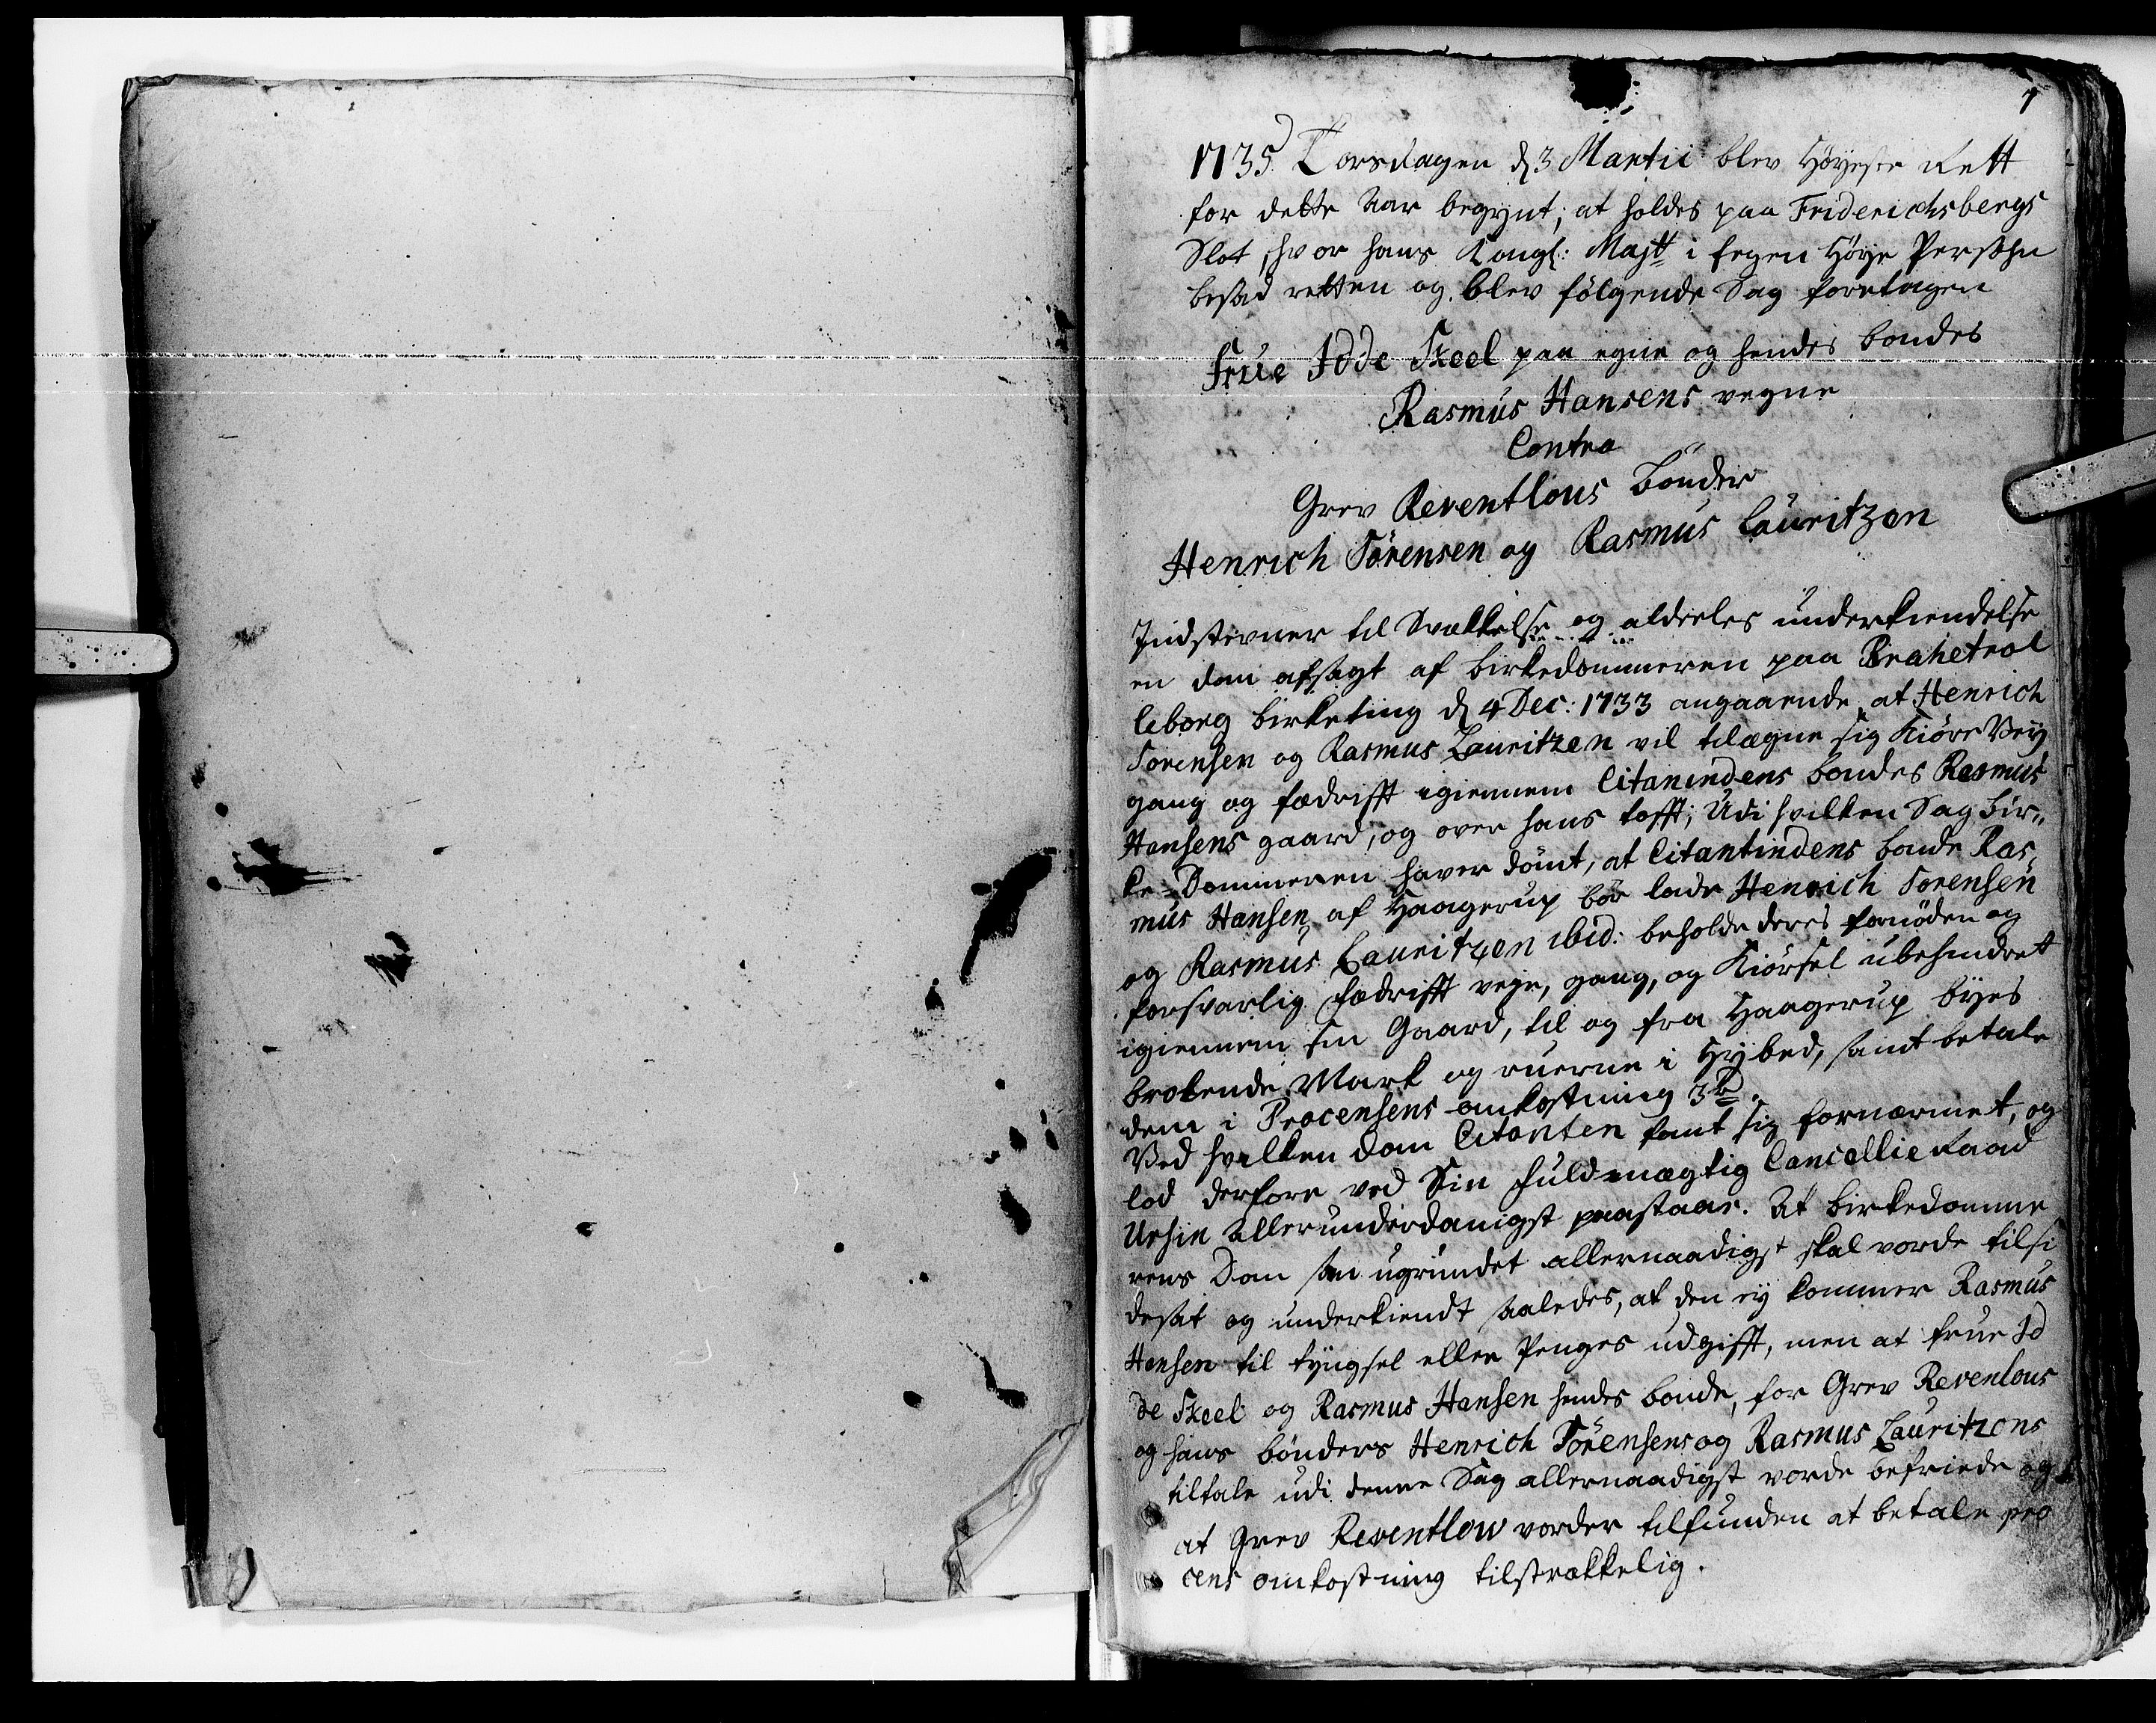 1
1735 Torsdagen d 3 Martii blev Høyeste Rett
for dette Aar begynt, at holdes paa Friderichsbergs
Slot, hvor hans Kongl: Majtt i Egen Høye Persohn
besad retten og blev følgende Sag foretagen
Frue Idde Skeel paa egne og hendes bondes
Rasmus Hansens vegne
Contra
Grev Reventlous Bønder
Henrich Sørensen og Rasmus Lauritzen
Indstevner til Svækkelse og aldeeles underkiendelse
en dom afsagt af birkedommeren paa Brahetrol
leborg birketing d 4 Dec: 1733 angaaende, at Henrich
Sorensen og Rasmus Lauritzen vil tilægne sig Kiøre Vey
gang og fædrifft igiennem Citanindens bondes Rasmus
Hansens gaard, og over hans tofft; Udi hvilken Sag bir„
ke-Dommeren haver dømt, at Citantindens bonde Ras„
mus Hansen af Haagerup bør lade Henrich Sorensen
og Rasmus Lauritzen ibid: beholde deres fornøden og
forsvarlig fædrifft veye, gang, og Kiørsel ubehindret
igiennem sin Gaard, til og fra Haagerup byes
brolende Mark og ruerne i Hybed, samt betale
dem i Processens omkostning 3 R.
Ved hvilken dom Citanten fant sig fornærmet, og
lod derfore ved Sin fuldmægtig Cancellie Raad
Ursin allerunderdanigst paastaae. At birkedomme
rens Dom som ugrundet allernaadigst skal vorde tilsi
desat og underkiendt saaledes, at den ey kommer Rasmus
Hansen til tyngsel eller Penges udgifft, men at Frue Id
de Skeel og Rasmus Hansen hendes bonde, for Grev Revenlous
og hans bønders Henrich Sørensens og Rasmus Lauritzens
tiltale udi denne Sag allernaadigst vorde befriede og
at Grev Reventlow vorder tilfunden at betale pro
cens omkostning tilstrækkelig.